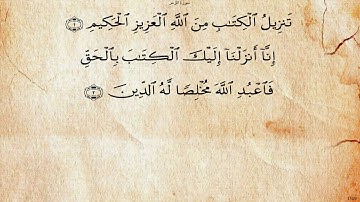 سورة الزمر
تَنزِيلُ ٱلْكِتَـٰبِ مِنَ ٱللَّهِ ٱلْعَزِيزِ ٱلْحَكِيمِ ١
إِنَّآ أَنزَلْنَآ إِلَيْكَ ٱلْكِتَـٰبَ بِٱلْحَقِّ
فَٱعْبُدِ ٱللَّهَ مُخْلِصًا لَّهُ ٱلدِّينَ ٢